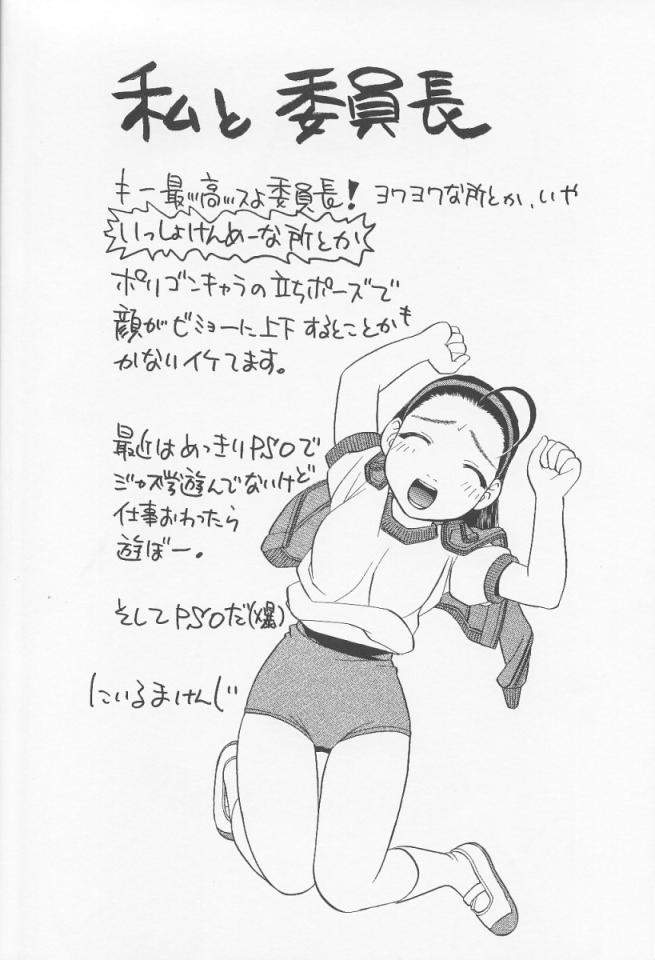 私と委員長
キー最ッ高ッスよ委員長! ヨワヨワな所とか、いや
いっしょけんめーな所とか
ポリゴンキャラの立ちポーズで
顔がビミョーに上下するとことかも
かないイケてます。
最近はめっきりPSOで
ジャズ学遊んでないけど
仕事おわったら
遊ぼー。
そしてPSOだ(爆)
にいるまけんじ